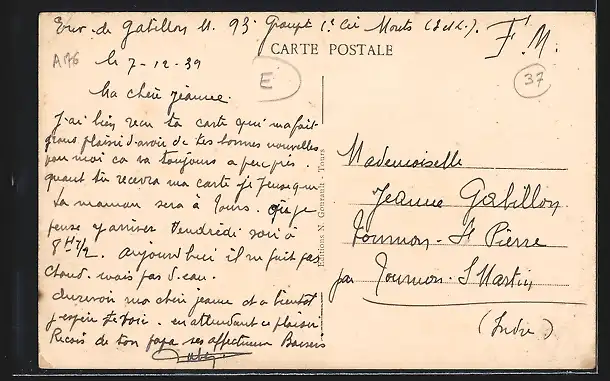 Env. de Gabillon M. 93e Groupt 1e Cie Monts (I et L.). F.M.
CARTE POSTALE
A96 le 7-12-39
E
37
Ma chère Jeanne.
J'ai bien recu ta carte qui ma fait
grans plaisir d'avoir de tes bonnes nouvelles
pour moi ca va toujours a peu près.
quant tu recevra ma carte je pense que
ta maman sera à Tours. que je
pense y arriver Vendredi soir à
8H 1/2. aujourd'hui il ne fait pas
chaud. mais pas d'eau.
auzevoir ma chèr jeanne et a bientot
j'espère te voir. en attendant ce plaisir
Recois de ton papa ses affectueux Baisers
Editions N. Gouzeault - Tours
Mademoiselle
Jeanne Gabillon
Tournon-St Pierre
par Tournon-St Martin
(Indre)